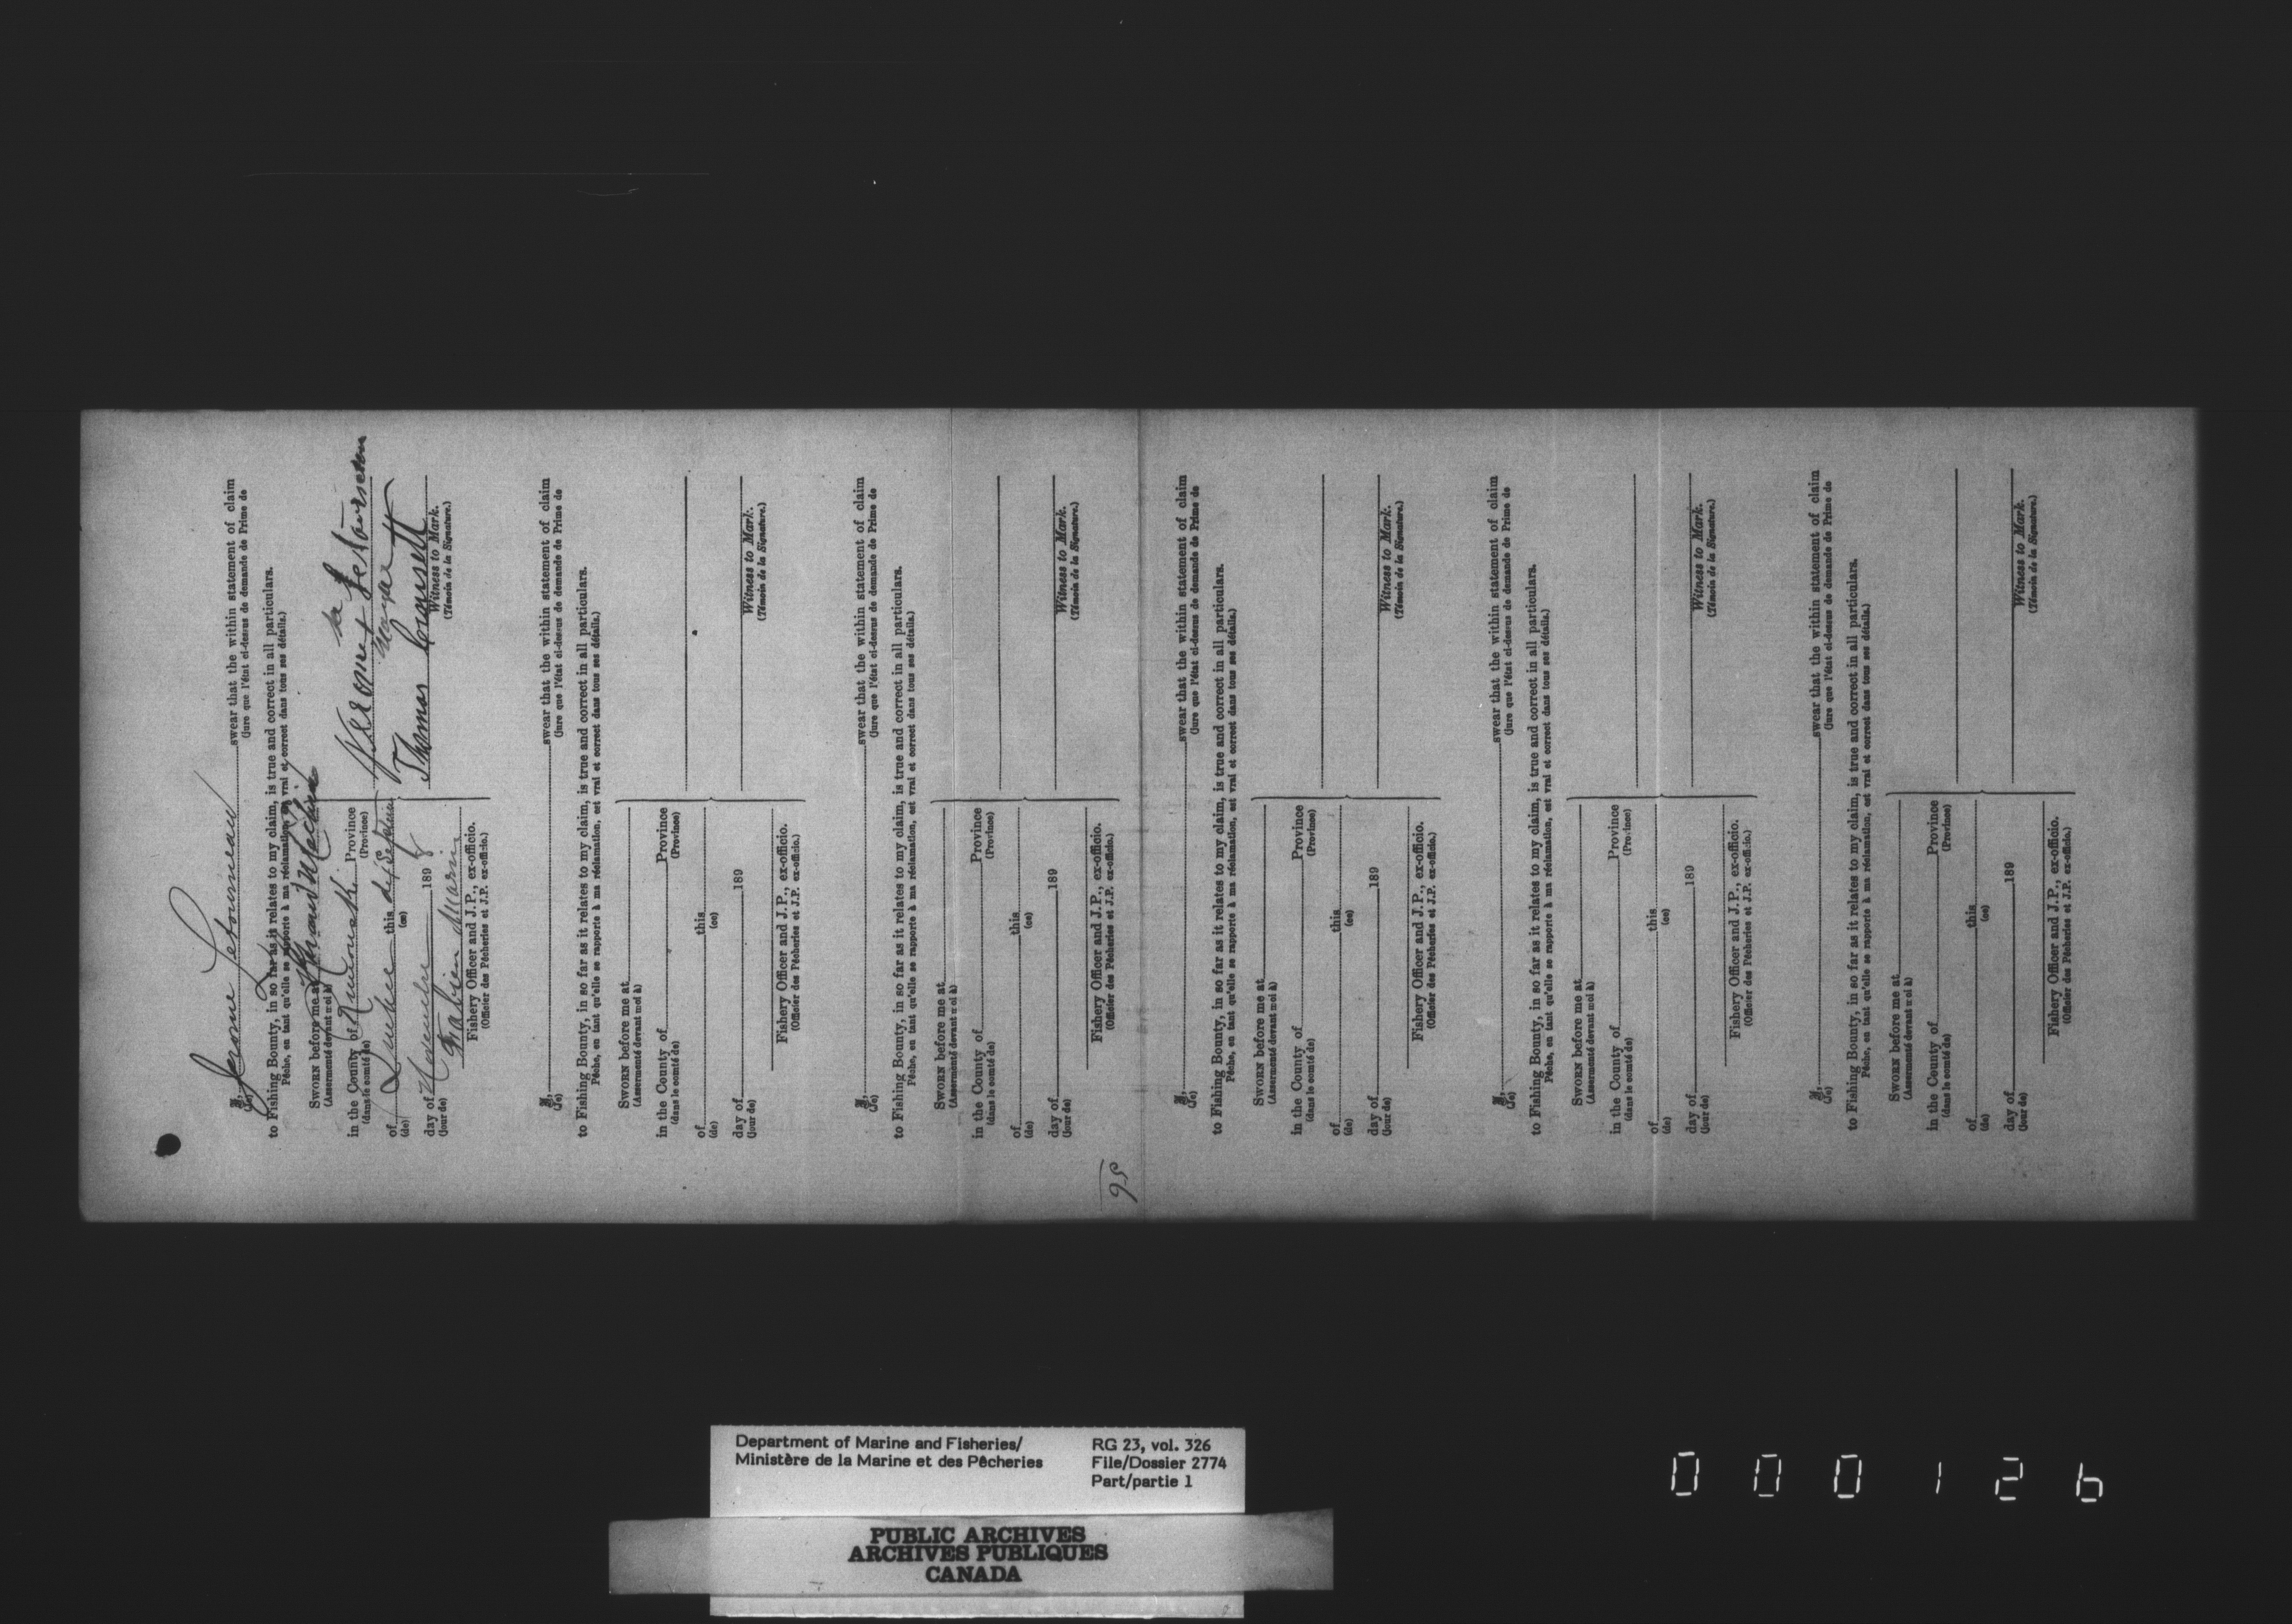 I, Jerome Letourneau swear that the within statement of claim
(Je) (jure que l'état ci-dessus de demande de Prime de
to Fishing Bounty, in so far as it relates to my claim, is true and correct in all particulars.
Pêche, en tant qu'elle se rapporte à ma réclamation, est vrai et correct dans tous ses détails.)
SWORN before me at
(Assermenté devant moi à)
in the County of Rimouski Province
(dans le comté de) (Province)
of Quebec this
(de) (ce)
day of Novembre 1898
(jour de)
Fabien Morin
Fishery Officer and J.P., ex-officio.
(Officier des Pêcheries et J.P. ex-officio.)
his
Jerome + Letourneau
mark
Thomas
Witness to Mark.
(Témoin de la Signature.)
I, swear that the within statement of claim
(Je) (jure que l'état ci-dessus de demande de Prime de
to Fishing Bounty, in so far as it relates to my claim, is true and correct in all particulars.
Pêche, en tant qu'elle se rapporte à ma réclamation, est vrai et correct dans tous ses détails.)
SWORN before me at
(Assermenté devant moi à)
in the County of Province
(dans le comté de) (Province)
of this
(de) (ce)
day of 189
(jour de)
Fishery Officer and J.P., ex-officio.
(Officier des Pêcheries et J.P. ex-officio.)
Witness to Mark.
(Témoin de la Signature.)
I, swear that the within statement of claim
(Je) (jure que l'état ci-dessus de demande de Prime de
to Fishing Bounty, in so far as it relates to my claim, is true and correct in all particulars.
Pêche, en tant qu'elle se rapporte à ma réclamation, est vrai et correct dans tous ses détails.)
SWORN before me at
(Assermenté devant moi à)
in the County of Province
(dans le comté de) (Province)
of this
(de) (ce)
day of 189
(jour de)
Fishery Officer and J.P., ex-officio.
(Officier des Pêcheries et J.P. ex-officio.)
Witness to Mark.
(Témoin de la Signature.)
95
I, swear that the within statement of claim
(Je) (jure que l'état ci-dessus de demande de Prime de
to Fishing Bounty, in so far as it relates to my claim, is true and correct in all particulars.
Pêche, en tant qu'elle se rapporte à ma réclamation, est vrai et correct dans tous ses détails.)
SWORN before me at
(Assermenté devant moi à)
in the County of Province
(dans le comté de) (Province)
of this
(de) (ce)
day of 189
(jour de)
Fishery Officer and J.P., ex-officio.
(Officier des Pêcheries et J.P. ex-officio.)
Witness to Mark.
(Témoin de la Signature.)
I, swear that the within statement of claim
(Je) (jure que l'état ci-dessus de demande de Prime de
to Fishing Bounty, in so far as it relates to my claim, is true and correct in all particulars.
Pêche, en tant qu'elle se rapporte à ma réclamation, est vrai et correct dans tous ses détails.)
SWORN before me at
(Assermenté devant moi à)
in the County of Province
(dans le comté de) (Province)
of this
(de) (ce)
day of 189
(jour de)
Fishery Officer and J.P., ex-officio.
(Officier des Pêcheries et J.P. ex-officio.)
Witness to Mark.
(Témoin de la Signature.)
I, swear that the within statement of claim
(Je) (jure que l'état ci-dessus de demande de Prime de
to Fishing Bounty, in so far as it relates to my claim, is true and correct in all particulars.
Pêche, en tant qu'elle se rapporte à ma réclamation, est vrai et correct dans tous ses détails.)
SWORN before me at
(Assermenté devant moi à)
in the County of Province
(dans le comté de) (Province)
of this
(de) (ce)
day of 189
(jour de)
Fishery Officer and J.P., ex-officio.
(Officier des Pêcheries et J.P. ex-officio.)
Witness to Mark.
(Témoin de la Signature.)
Department of Marine and Fisheries/ RG 23, vol. 326
Ministère de la Marine et des Pêcheries File/Dossier 2774
Part/partie 1
PUBLIC ARCHIVES
ARCHIVES PUBLIQUES
CANADA
000126